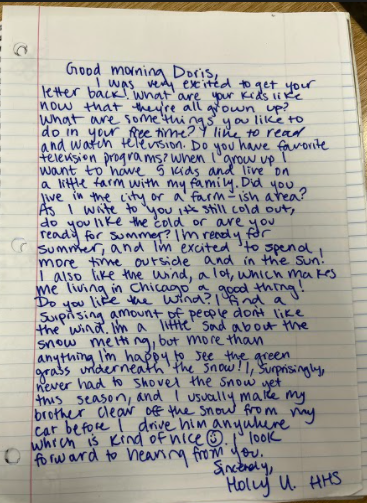 Good morning Doris,
I was very excited to get your
letter back! What are your kids like
now that they're all grown up?
What are some things you like to
do in your free time? I like to read
and watch television. Do you have favorite
television programs? When I grow up I
want to have 5 kids and live on
a little farm with my family. Did you
live in the city or a farm-ish area?
As I write to you its still cold out,
do you like the cold or are you
ready for summer? I'm ready for
summer, and I'm excited to spend
more time outside and in the sun!
I also like the wind, a lot, which makes
me living in Chicago a good thing!
Do you like the wind? I find a
suprising amount of people dont like
the wind. I'm a little sad about the
snow melting, but more than
anything I'm happy to see the green
grass underneath the snow! I, surprisingly,
never had to shovel the snow yet
this season, and I usually make my
brother clear off the snow from my
car before I drive him anywhere
which is kind of nice ☺. I look
forward to hearing from you.
Sincerely,
Holly U. HHS